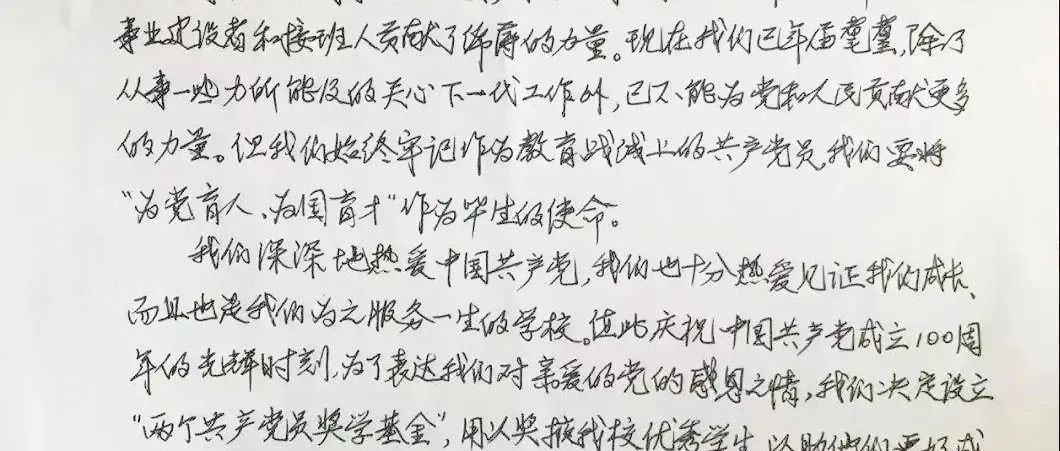 事业建设者和接班人贡献了绵薄的力量。现在我们已年届耄耋,除了
从事一些力所能及的关心下一代工作外,已不能为党和人民贡献更多
的力量。但我们始终牢记作为教育战线上的共产党员,我们要将
“为党育人、为国育才”作为毕生的使命。
我们深深地热爱中国共产党,我们也十分热爱见证我们成长、
而且也是我们为之服务一生的学校。值此庆祝中国共产党成立100周
年的光辉时刻,为了表达我们对亲爱的党的感恩之情,我们决定设立
“两个共产党员奖学基金”,用以奖掖我校优秀学生,以助他们更好成